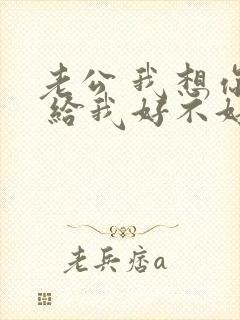 老公我想你
給我好不好
老兵痞a